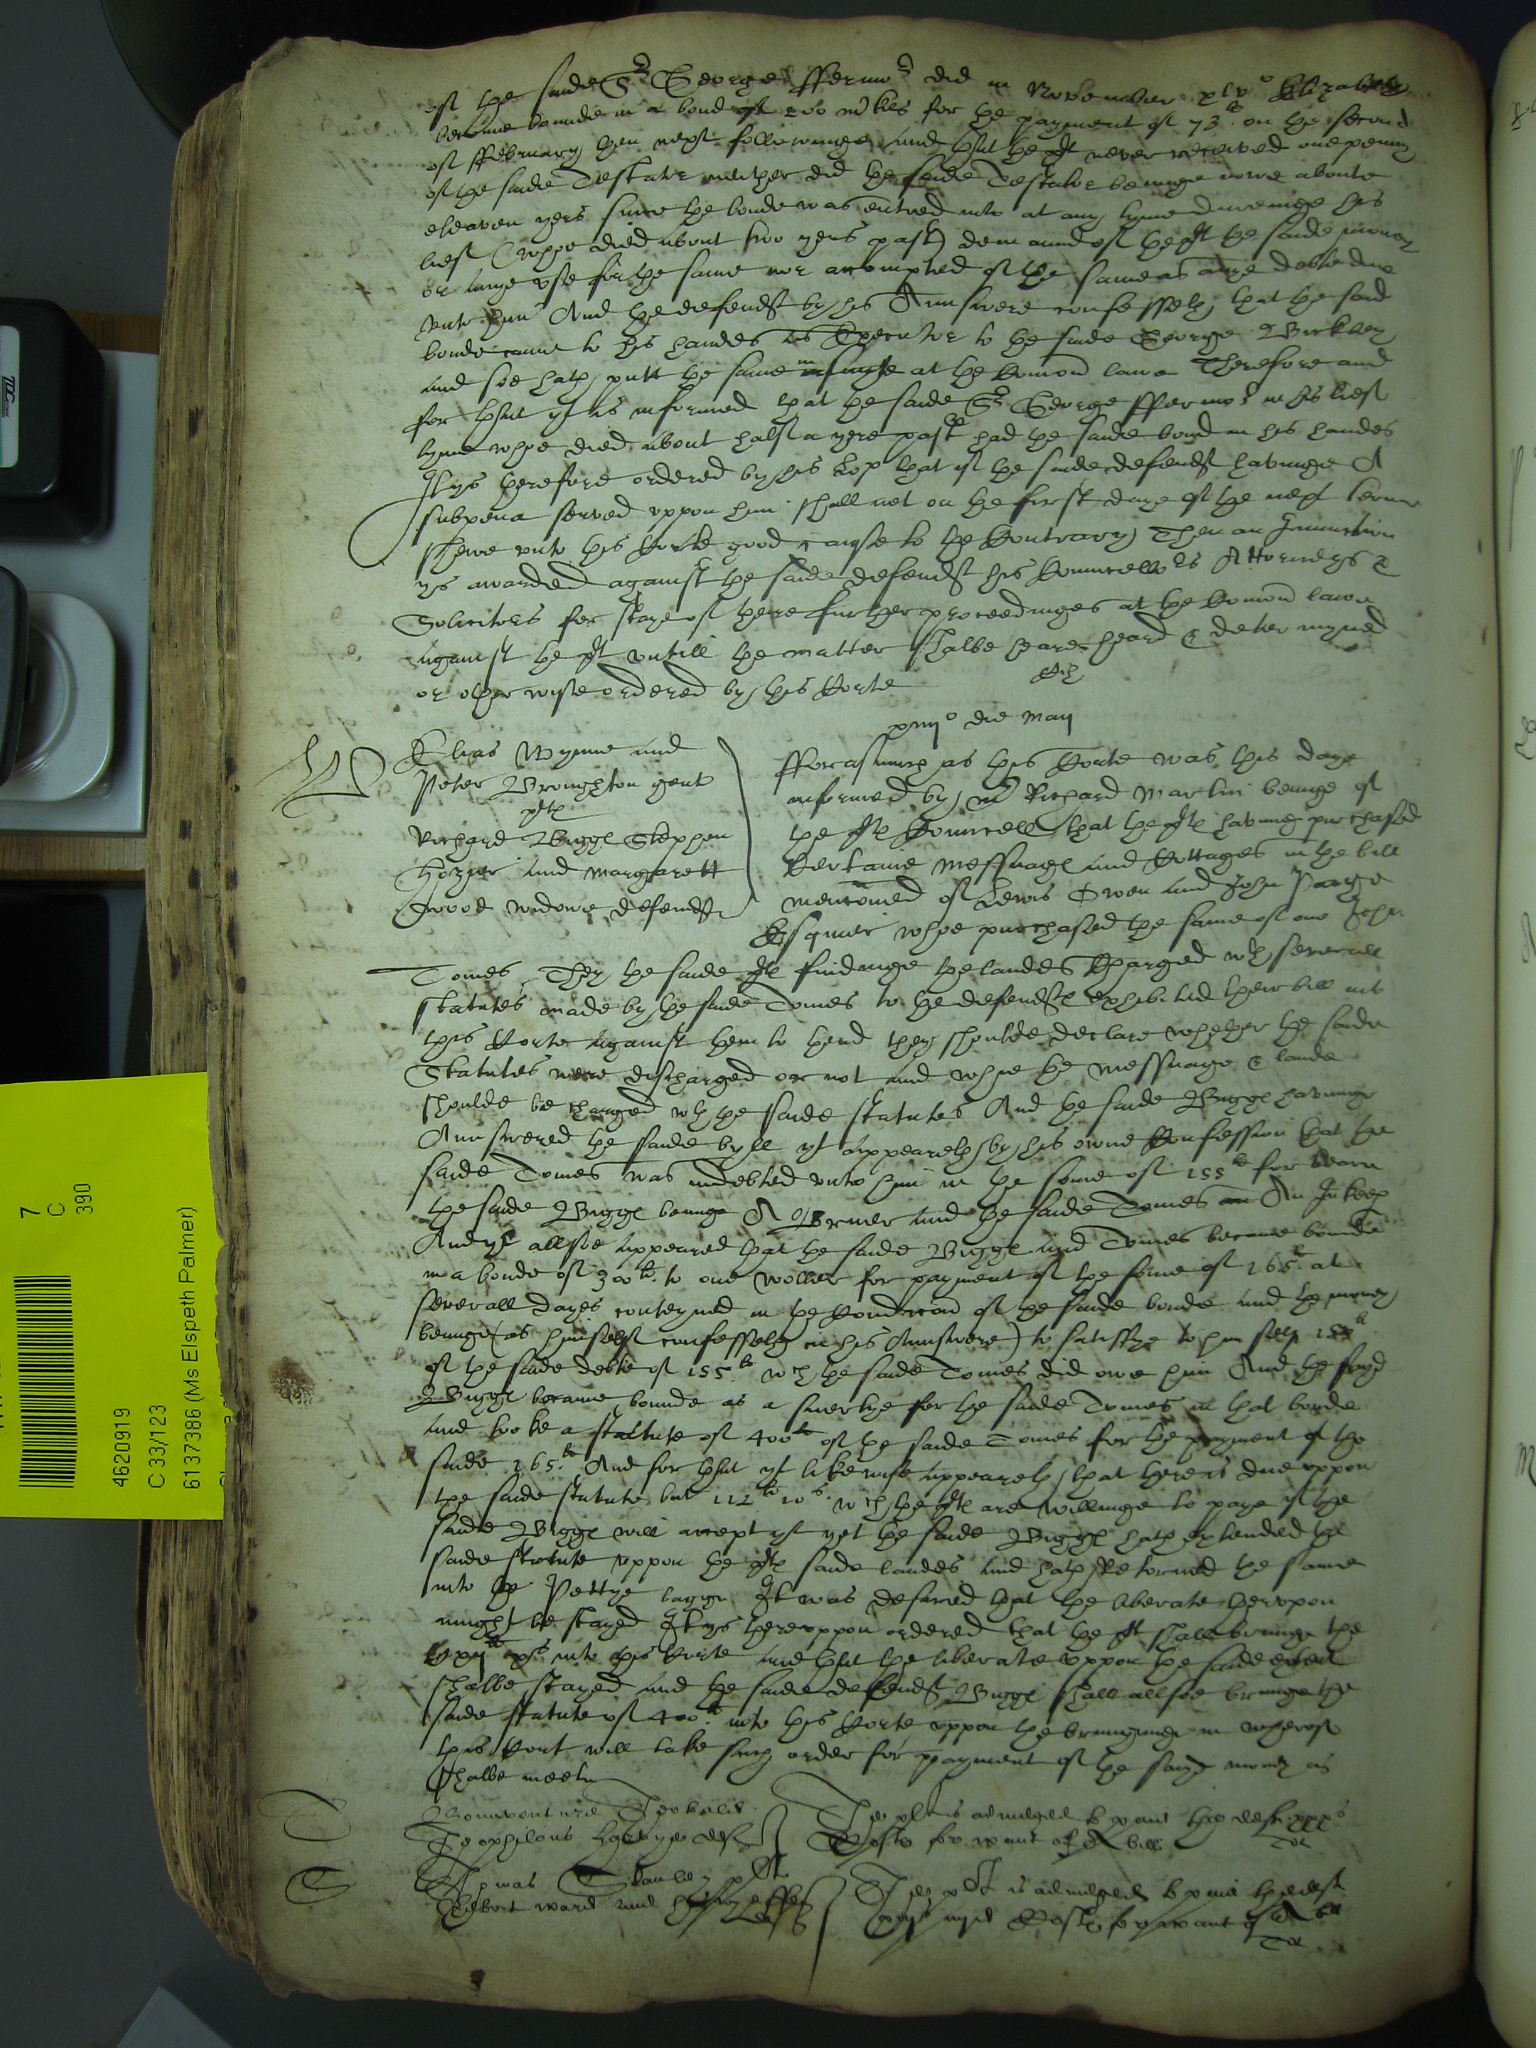 of the saide Sr George ffermor did in November xlvo Elizabeth
become bounde in a bond of 200 mrkes for the payment of 73li on the second
of ffebruary then next followinge and that the plt never received one penny
of the saide Testator neither did the saide Testator beinge nowe aboute
eleaven yers since the bonde was entred into at any tyme duringe his
lief (whoe died about two yers past) demaund of the plt the saide money
or anye use for the same nor accompted of the same as anye debte due
unto him And the defendt by his Answere confesseth that the said
bonde came to his handes as Executor to the saide George
and soe hath putt the same in suite at the Comon lawe Therefore and
for that yt is informed that the saide Sr George ffermor in his lief
tyme whoe died about half a yere past had the saide bond in his handes
Yt ys therefore ordered by this Cop that if the saide defendt havinge A
subpena served uppon him shall not on the first daye of the next terme
shewe unto this Corte good cause to the Contrary Then an Iniunction
ys awarded against the saide defendt his Councellors Attorneys &
Solicitors for staye of there further proceedinges at the Comon lawe
against the plt untill the matter shalbe heare heard & determyned
or otherwyse ordered by this Corte
xiiiio die Maij
Elias Wynne and
Peter Broughton gent
plts
Richard Biggs Stephen
Hozier and Margarett
Gwood widowe defendts
fforasmuch as this Corte was this daye
informed by Mr Richard Martin beinge of
the plts Councell that the plts having purchased
Certaine Messuages and Cottages in the bill
mencioned of Lewis Owen and John Parge
Esquier whoe purchased the same of one John
Tomes They the saide plts findinge the landes Charged wth severall
statutes made by the saide Tomes to the defendts exhibited their bill into
this Corte against them to thend they shoulde declare whether the saide
Statutes were discharged or not and whie the messuage & lande
shoulde be charged wth the saide statutes And the saide Biggs havinge
Answered the saide byll yt appeareth by his owne Confession that the
saide Tomes was indebted unto him in the some of 155li for beare
the saide Biggs beinge A Brewer and the saide Tomes an An Inkeep
And yt allsoe appeared that the saide Biggs and Tomes became bounde
in a bonde of 300li to one Collier for payment of the some of 165li at
severall dayes conteyned in the Condicon of the saide bonde and the money
beinge (as himself confesseth in his Answere) to satisfye to him self 155li
of the saide debte of 155li wch the saide Tomes did owe him And the sayd
Biggs became bounde as a suertye for the saide Tomes in that bonde
and tooke a statute of 400li of the saide Tomes for the payment of the
saide 165li And for that yt likewise appeareth that there is due uppon
the saide statute but 112li 10s wch the plts are willinge to paye yf the
saide Biggs will accept yt yet the saide Biggs hath extended the
saide statute uppon the plts saide landes and hath Retorned the same
into the Pettye bagge It was desired that the liberate thereupon
might be stayed It ys thereuppon ordered that the plt shall bringe the
cxijli xs into this Corte and that the liberate uppon the saide extent
shalbe stayed and the saide defendt Biggs shall allsoe bringe the
saide statute of 400li into this Corte uppon the bringinge in whereof
this Cort will take such order for payment of the sayd money as
shalbe meete
Theophilous def
The plt is adiudged to paie the deft xxxs
Costs for want of A bill
Thomas Stanley plt
Robert Ward and
The plt is adiudged to paie the deft
Costs for want of A bill
7
C
390
4620919
C 33/123
6137386 (Ms Elspeth Palmer)